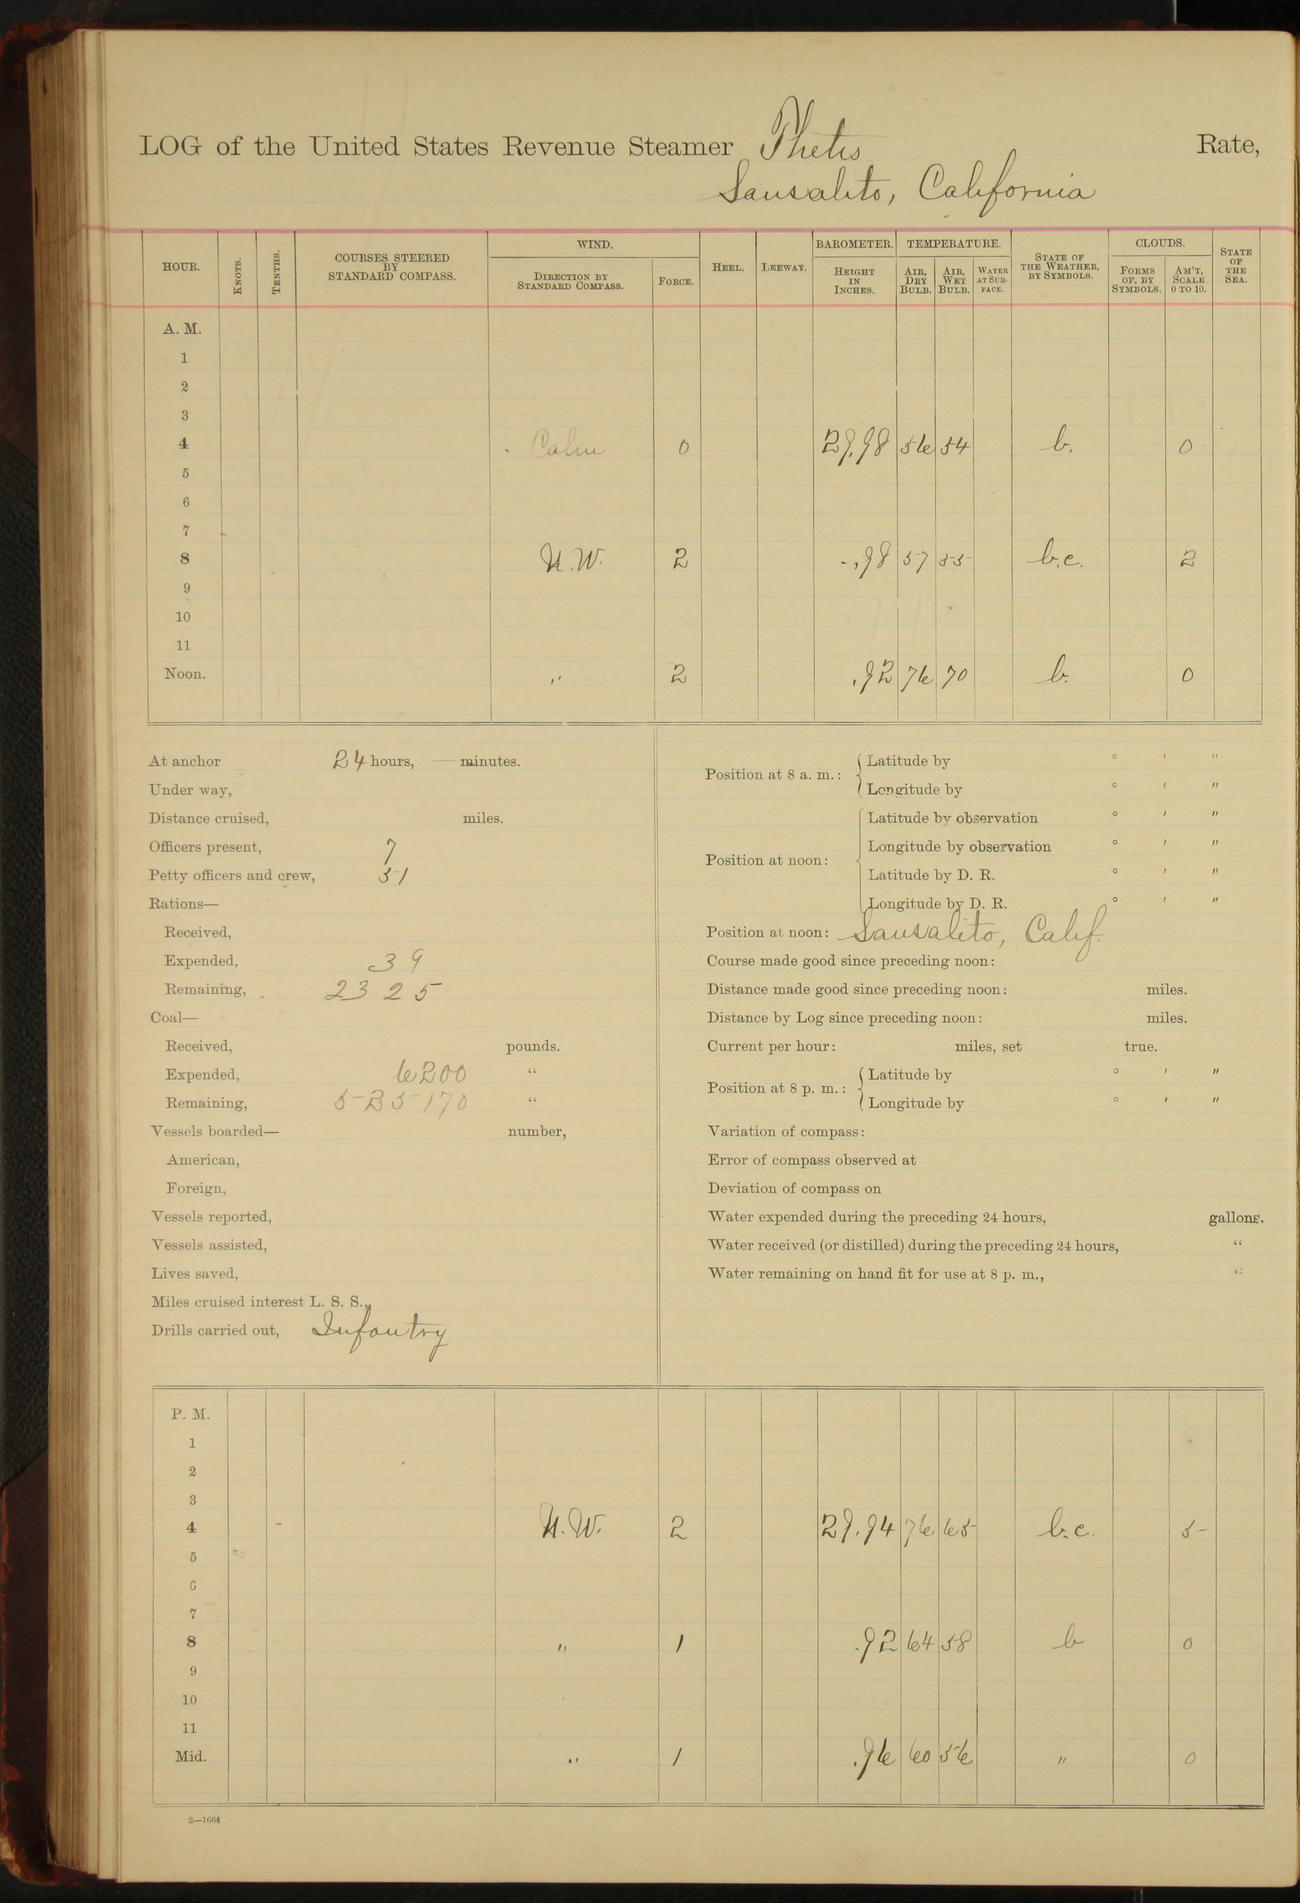 LOG of the United States Revenue Steamer Thetis Rate,
Sausalito, California
HOUR. KNOTS. TENTHS. COURSES STEERED BY STANDARD COMPASS. WIND. DIRECTION BY STANDARD COMPASS. FORCE. HEEL. LEEWAY. BAROMETER. HEIGHT IN INCHES. TEMPERATURE. AIR, DRY BULB. AIR, WET BULB. WATER AT SURFACE. STATE OF THE WEATHER, BY SYMBOLS. CLOUDS. FORMS OF, BY SYMBOLS. AM'T, SCALE 0 TO 10. STATE OF THE SEA.
A. M.
1
2
3
4 Calm 0 29.98 56 54 b. 0
5
6
7
8 N.W. 2 .98 57 55 b.c. 2
9
10
11
Noon. " 2 .92 76 70 b. 0
At anchor 24 hours, — minutes.
Under way,
Distance cruised, miles.
Officers present, 7
Petty officers and crew, 51
Rations—
Received,
Expended, 39
Remaining, 2325
Coal—
Received, pounds.
Expended, 6200 "
Remaining, 525170 "
Vessels boarded— number,
American,
Foreign,
Vessels reported,
Vessels assisted,
Lives saved,
Miles cruised interest L. S. S.,
Drills carried out, Infantry
Position at 8 a. m.: Latitude by ° ′ ″
Longitude by ° ′ ″
Position at noon: Latitude by observation ° ′ ″
Longitude by observation ° ′ ″
Latitude by D. R. ° ′ ″
Longitude by D. R. ° ′ ″
Position at noon: Sausalito, Calif.
Course made good since preceding noon:
Distance made good since preceding noon: miles.
Distance by Log since preceding noon: miles.
Current per hour: miles, set true.
Position at 8 p. m.: Latitude by ° ′ ″
Longitude by ° ′ ″
Variation of compass:
Error of compass observed at
Deviation of compass on
Water expended during the preceding 24 hours, gallons.
Water received (or distilled) during the preceding 24 hours, "
Water remaining on hand fit for use at 8 p. m., "
P. M.
1
2
3
4 N.W. 2 29.94 76 65 b.c. 5
5
6
7
8 " 1 .92 64 58 b 0
9
10
11
Mid. " 1 .96 60 56 " 0
2—1664